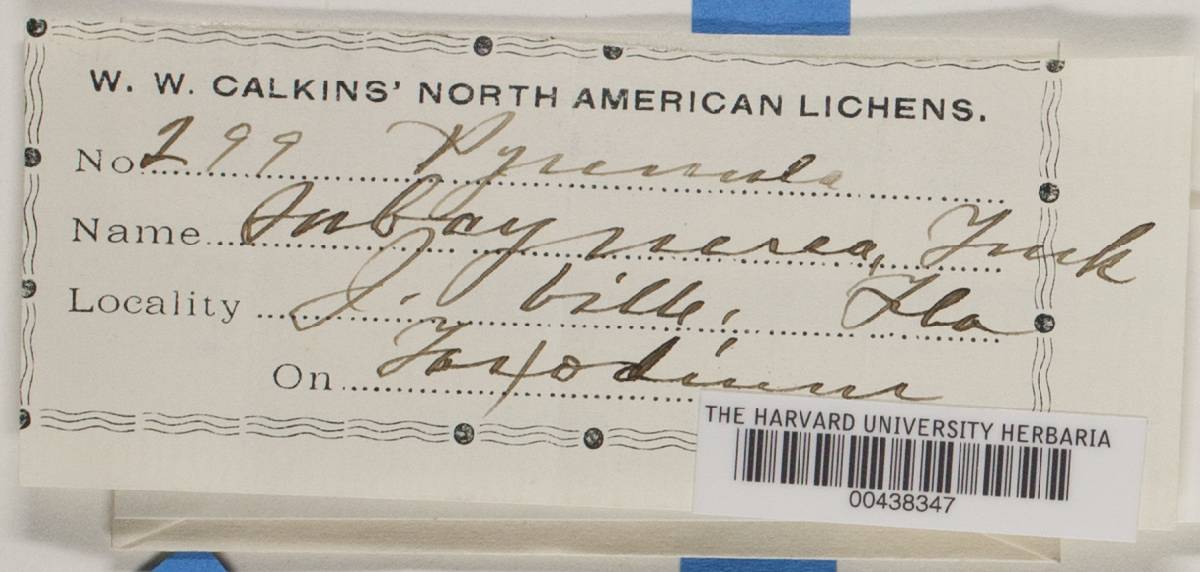 W. W. CALKINS' NORTH AMERICAN LICHENS.
No. 299 Pyrenula
Name Tuck
Locality J. ville, Fla
On Taxodium
THE HARVARD UNIVERSITY HERBARIA
00438347